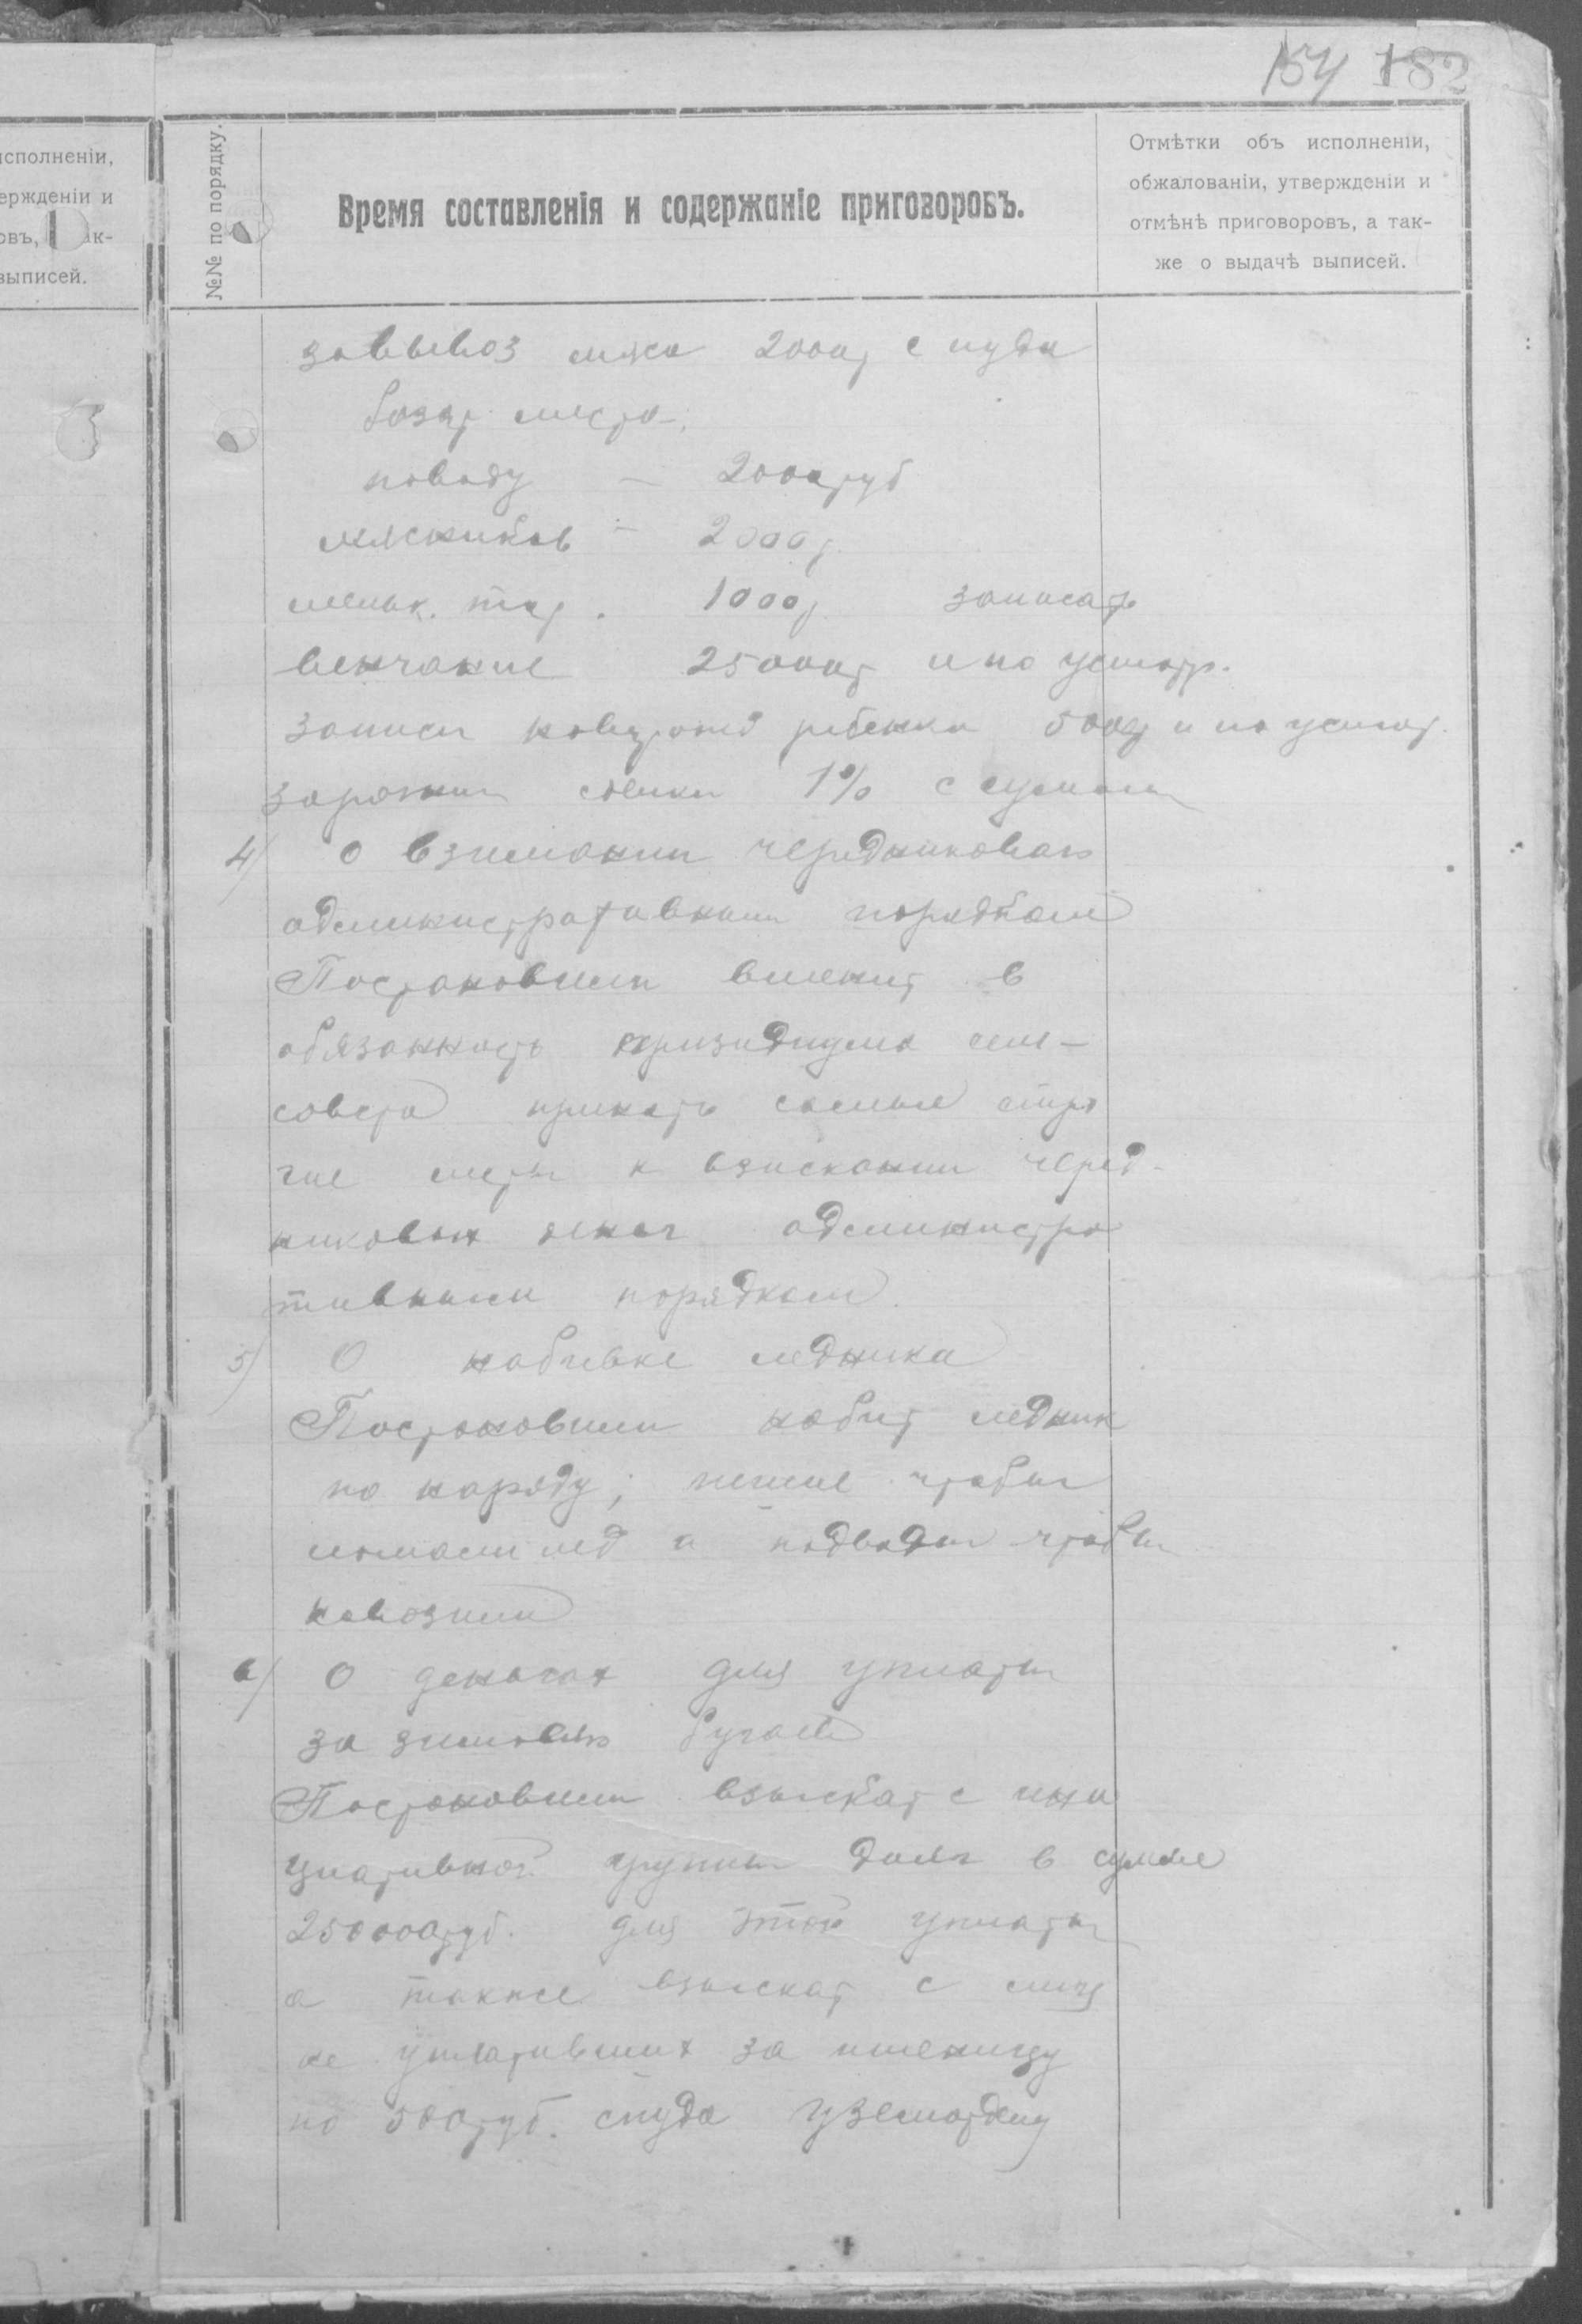 154 182
исполненіи,
ержденіи и
овъ, ак-
выписей.
№№ по порядку.
Время составленія и содержаніе приговоровъ.
Отмѣтки объ исполненіи,
обжалованіи, утвержденіи и
отмѣнѣ приговоровъ, а так-
же о выдачѣ выписей.
за вывоз мяса 2000р с пуда
базар. места:
поводу — 2000 руб
мясников – 2000р
мельк. тор. 1000р. записать
венчание 25000р и по усмотр.
записи новорожд ребенка 5000р и по усмот.
за сделки 1% с суммы
4) О взимании чередниковых
административным порядком
Постановили вменит в
обязанность призидиума сель-
совета принять самые стро
гие меры к взискании черед-
никовых денег администра
тивным порядком.
5) О набивке ледника
Постановили набит ледник
по наряду; пешие чтобы
ломали лед а подводы чтобы
навозили
6) О деньгах для уплаты
за зимовлю бугаев
Постановили взыскат с ини
циативной групы долг в сумме
250000 руб. для этой уплаты
а также взыскат с лиц
не уплативших за пшеницу
по 500 руб. с пуда